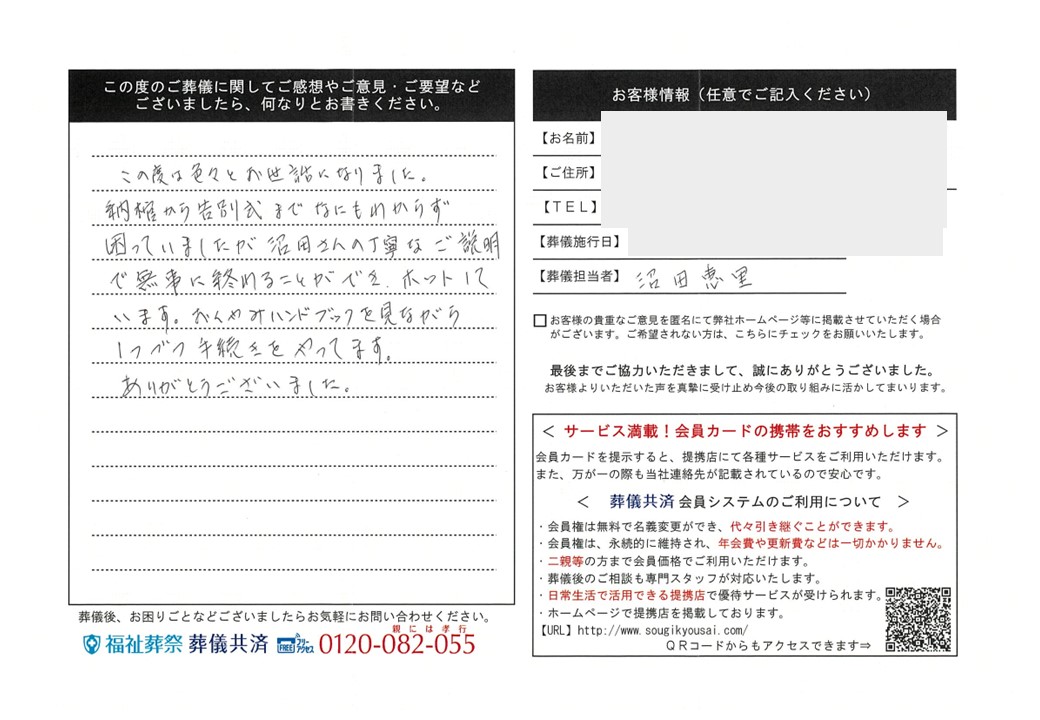 この度のご葬儀に関してご感想やご意見・ご要望など
ございましたら、何なりとお書きください。
この度は色々とお世話になりました。
納棺から告別式までなにもわからず
困っていましたが沼田さんの丁寧なご説明
で無事に終れることができ、ホットして
います。おくやみハンドブックを見ながら
1つづつ手続きをやってます。
ありがとうございました。
葬儀後、お困りごとなどございましたらお気軽にお問い合わせください。
福祉葬祭 葬儀共済 FREE フリーアクセス 親には孝行 0120-082-055
お客様情報（任意でご記入ください）
【お名前】
【ご住所】
【ＴＥＬ】
【葬儀施行日】
【葬儀担当者】 沼田恵里
□お客様の貴重なご意見を匿名にて弊社ホームページ等に掲載させていただく場合
がございます。ご希望されない方は、こちらにチェックをお願いいたします。
最後までご協力いただきまして、誠にありがとうございました。
お客様よりいただいた声を真摯に受け止め今後の取り組みに活かしてまいります。
＜ サービス満載！会員カードの携帯をおすすめします ＞
会員カードを提示すると、提携店にて各種サービスをご利用いただけます。
また、万が一の際も当社連絡先が記載されているので安心です。
＜ 葬儀共済 会員システムのご利用について ＞
・会員権は無料で名義変更ができ、代々引き継ぐことができます。
・会員権は、永続的に維持され、年会費や更新費などは一切かかりません。
・二親等の方まで会員価格でご利用いただけます。
・葬儀後のご相談も専門スタッフが対応いたします。
・日常生活で活用できる提携店で優待サービスが受けられます。
・ホームページで提携店を掲載しております。
【URL】http://www.sougikyousai.com/
ＱＲコードからもアクセスできます⇒